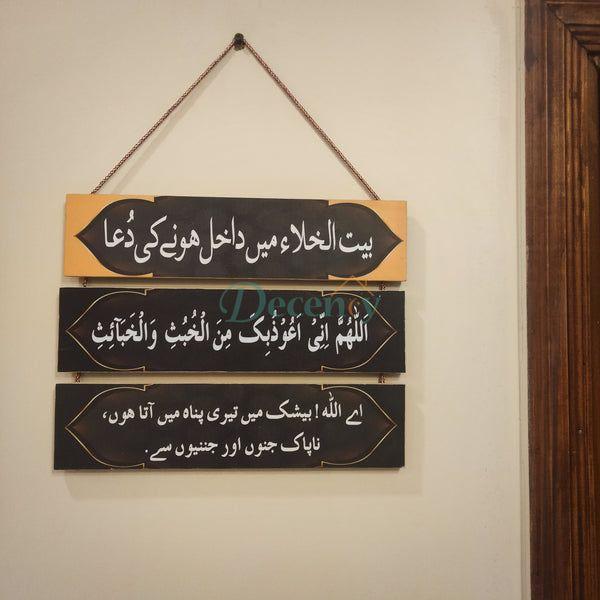 بیت الخلاء میں داخل ہونے کی دُعا
Decency
اَللّٰهُمَّ اِنِّیْ اَعُوْذُبِکَ مِنَ الْخُبُثِ وَالْخَبَآئِثِ
اے اللہ! بیشک میں تیری پناہ میں آتا ہوں،
ناپاک جنوں اور جننیوں سے.